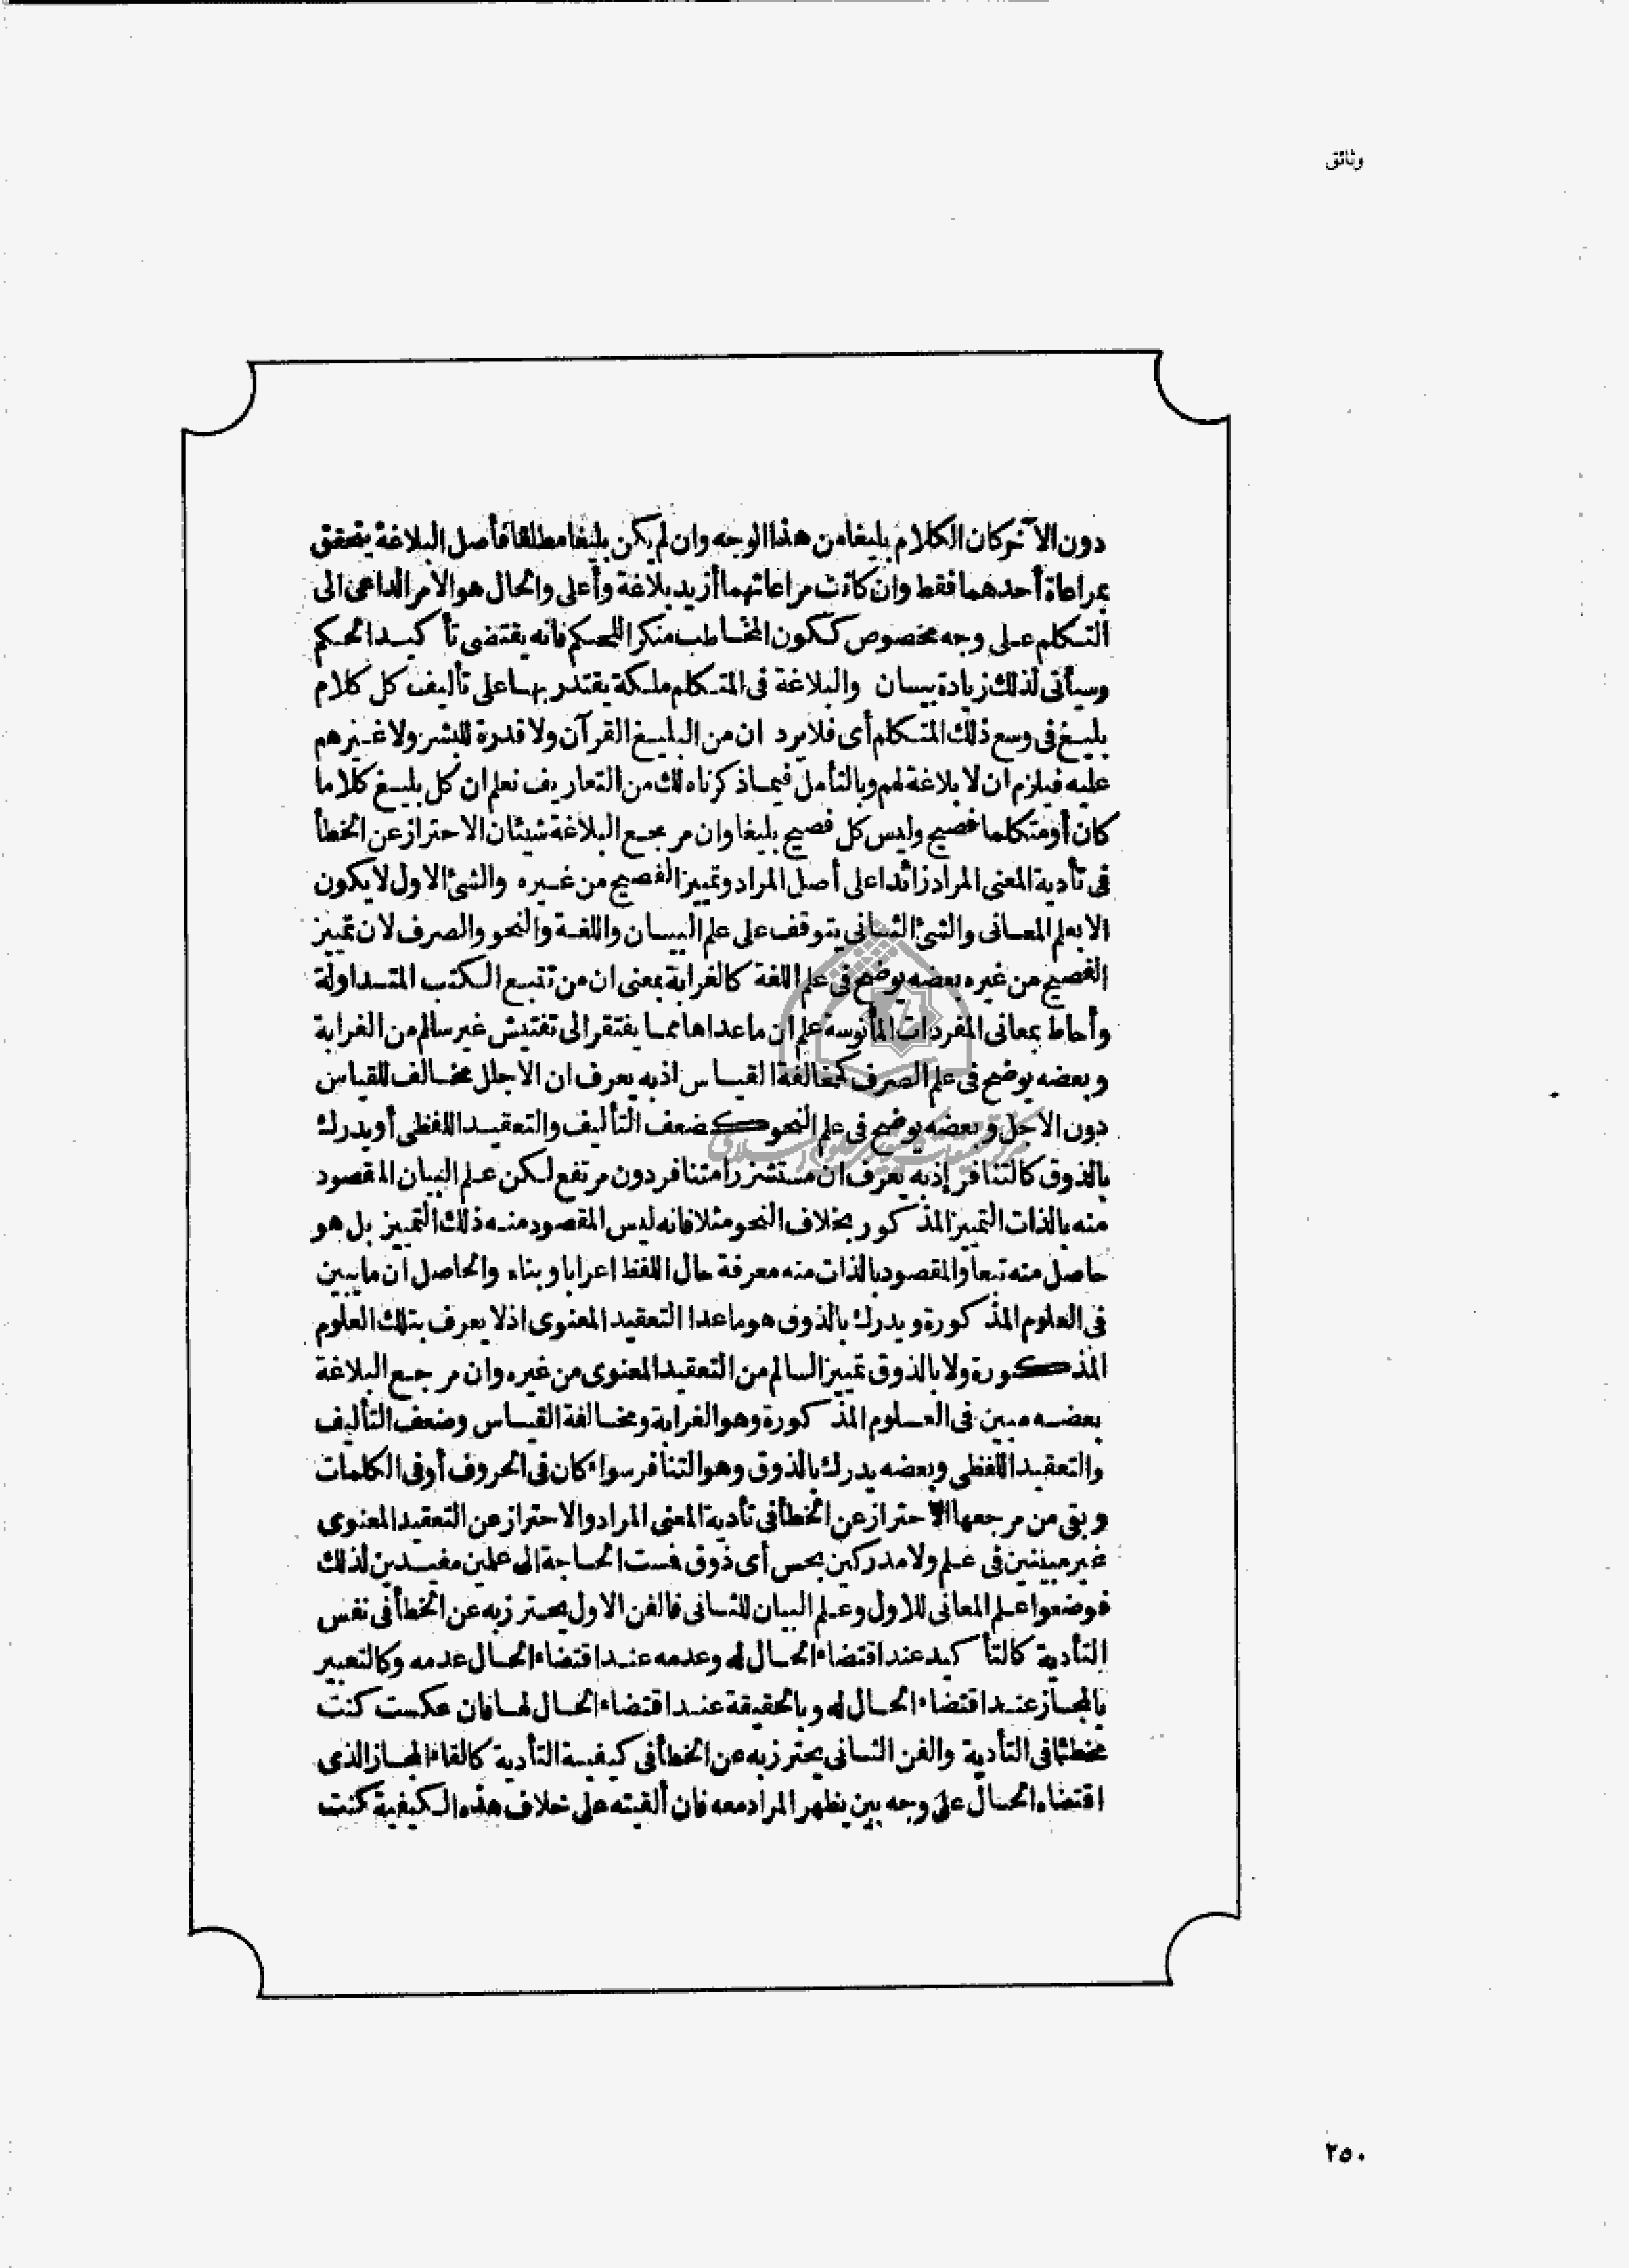 وثائق
دون الآخر كان الكلام بليغا من هذا الوجه وان لم يكن بليغا مطلقا فأصل البلاغة يتحقق
بمراعاة أحدهما فقط وان كانت مراعاتهما أزيد بلاغة وأعلى والحال هو الامر الداعى الى
التكلم على وجه مخصوص ككون المخاطب منكرا للحكم فانه يقتضى تأكيد الحكم
وسيأتى لذلك زيادة بيان والبلاغة فى المتكلم ملكة يقتدر بها على تأليف كل كلام
بليغ فى وسع ذلك المتكلم أى فلا يرد ان من البليغ القرآن ولا قدرة للبشر ولا غيرهم
عليه فيلزم ان لا بلاغة لهم وبالتأمل فيما ذكرناه لك من التعاريف نعلم ان كل بليغ كلاما
كان أو متكلما فصيح وليس كل فصيح بليغا وان مرجع البلاغة شيئان الاحتراز عن الخطأ
فى تأدية المعنى المراد زائدا على أصل المراد وتمييز الفصيح من غيره والشئ الاول لا يكون
الا بعلم المعانى والشئ الثانى يتوقف على علم البيان واللغة والنحو والصرف لان تمييز
الفصيح من غيره بعضه يوضح فى علم اللغة كالغرابة بمعنى ان من تتبع الكتب المتداولة
وأحاط بمعانى المفردات المأنوسة علم ان ما عداها مما يفتقر الى تفتيش غير سالم من الغرابة
وبعضه يوضح فى علم الصرف كمخالفة القياس اذ به يعرف ان الاجلل مخالف للقياس
دون الاجل وبعضه يوضح فى علم النحو كضعف التأليف والتعقيد اللفظى أو يدرك
بالذوق كالتنافر إذ به يعرف ان مستشزرا متنافر دون مرتفع لكن علم البيان المقصود
منه بالذات التمييز المذكور بخلاف النحو مثلا فانه ليس المقصود منه ذلك التمييز بل هو
حاصل منه تبعا والمقصود بالذات منه معرفة حال اللفظ اعرابا وبناء والحاصل ان ما يبين
فى العلوم المذكورة ويدرك بالذوق هو ما عدا التعقيد المعنوى اذ لا يعرف بتلك العلوم
المذكورة ولا بالذوق تمييز السالم من التعقيد المعنوى من غيره وان مرجع البلاغة
بعضه مبين فى العلوم المذكورة وهو الغرابة ومخالفة القياس وضعف التأليف
والتعقيد اللفظى وبعضه يدرك بالذوق وهو التنافر سواء كان فى الحروف أو فى الكلمات
وبقى من مرجعها الاحتراز عن الخطأ فى تأدية المعنى المراد والاحتراز عن التعقيد المعنوى
غير مبينين فى علم ولا مدركين بحس أى ذوق فمست الحاجة الى علمين مفيدين لذلك
فوضعوا علم المعانى للاول وعلم البيان للثانى فالفن الاول يحترز به عن الخطأ فى نفس
التأدية كالتأكيد عند اقتضاء الحال له وعدمه عند اقتضاء الحال عدمه وكالتعبير
بالمجاز عند اقتضاء الحال له وبالحقيقة عند اقتضاء الحال لها فان عكست كنت
مخطئا فى التأدية والفن الثانى يحترز به عن الخطأ فى كيفية التأدية كالقاء المجاز الذى
اقتضاه الحال على وجه بين يظهر المراد معه فان ألقيته على خلاف هذه الكيفية كنت
٢٥٠